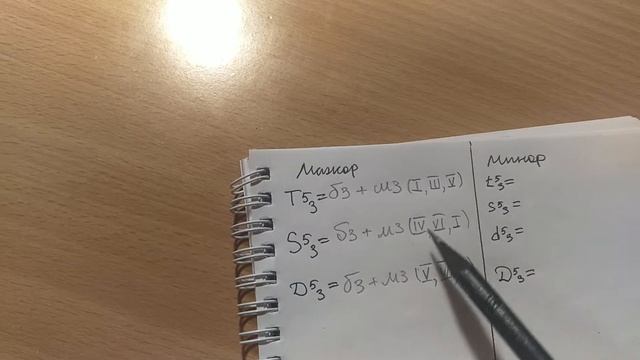 Мажор
T⁵₃=б3+м3 (I, III, V)
S⁵₃=б3+м3 (IV, VI, I)
D⁵₃=б3+м3 (V,
Минор
t⁵₃=
s⁵₃=
d⁵₃=
D⁵₃=